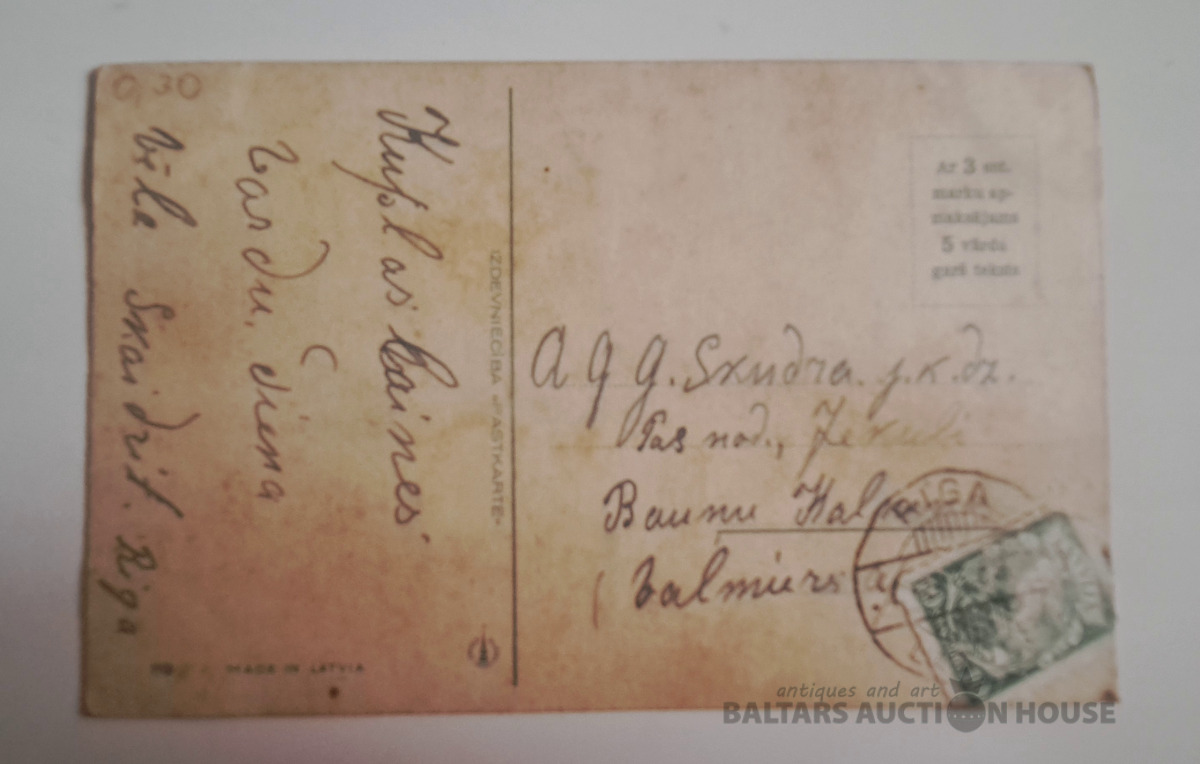 0 30
Kuplas Laimes
Vārdu. diena
vēlē Skaidrīt. Rīga
IZDEVNIECĪBA «PASTKARTE»
MADE IN LATVIA
Ar 3 snt.
marku ap-
maksājams
5 vārdu
garš teksts
A g g. Skudra. j.k.dz.
Pas nod., Jekuli
Baunu Kal
Valmiers
RIGA
antiques and art
BALTARS AUCTION HOUSE